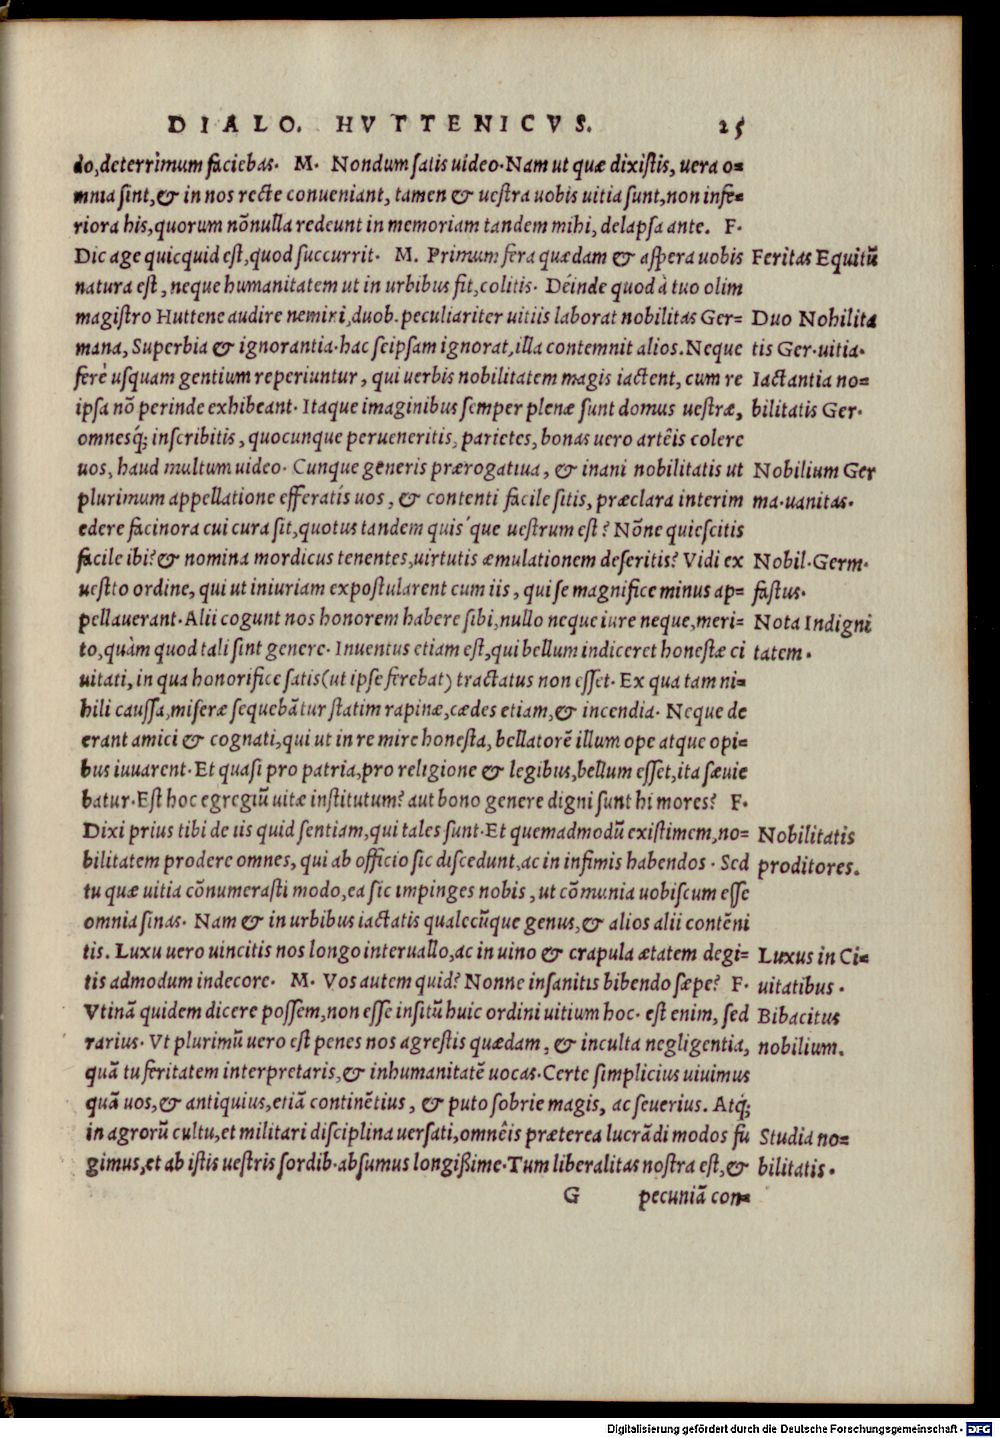 DIALO. HVTTENICVS. 25
do, deterrimum faciebas. M. Nondum satis uideo. Nam ut quæ dixistis, uera o=
mnia sint, & in nos recte conueniant, tamen & uestra uobis uitia sunt, non infe=
riora his, quorum nōnulla redeunt in memoriam tandem mihi, delapsa ante. F.
Dic age quicquid est, quod succurrit. M. Primum fera quædam & aspera uobis
Feritas Equitū
natura est, neque humanitatem ut in urbibus fit, colitis. Déinde quod à tuo olim
magistro Huttene audire nemini, duob. peculiariter uitiis laborat nobilitas Ger=
Duo Nobilita
mana, Superbia & ignorantia. hac seipsam ignorat, illa contemnit alios. Neque
tis Ger. uitia.
ferè usquam gentium reperiuntur, qui uerbis nobilitatem magis iactent, cum re
Iactantia no=
ipsa nō perinde exhibeant. Itaque imaginibus semper plenæ sunt domus uestræ,
bilitatis Ger.
omnesq́; inscribitis, quocunque perueneritis, parietes, bonas uero artêis colere
uos, haud multum uideo. Cunque generis prærogatiua, & inani nobilitatis ut
Nobilium Ger
plurimum appellatione efferatís uos, & contenti facile sitis, præclara interim
ma. uanitas.
edere facinora cui cura sit, quotus tandem quis que uestrum est? Nōne quiescitis
facile ibi? & nomina mordicus tenentes, uirtutis æmulationem deseritis? Vidi ex
Nobil. Germ.
uestto ordine, qui ut iniuriam expostularent cum iis, qui se magnifice minus ap=
fastus.
pellauerant. Alii cogunt nos honorem habere sibi, nullo neque iure neque, meri=
Nota Indigni
to, quàm quod tali sint genere. Inuentus etiam est, qui bellum indiceret honestæ ci
tatem.
uitati, in qua honorifice satis (ut ipse ferebat) tractatus non esset. Ex qua tam ni=
hili caussa, miseræ sequebātur statim rapinæ, cædes etiam, & incendia. Neque de
erant amici & cognati, qui ut in re mire honesta, bellatorē illum ope atque opi=
bus iuuarent. Et quasi pro patria, pro religione & legibus, bellum esset, ita sæuie
batur. Est hoc egregiū uitæ institutum? aut bono genere digni sunt hi mores? F.
Dixi prius tibi de iis quid sentiam, qui tales sunt. Et quemadmodū existimem, no=
Nobilitatis
bilitatem prodere omnes, qui ab officio sic discedunt, ac in infimis habendos. Sed
proditores.
tu quæ uitia cōnumerasti modo, ea sic impinges nobis, ut cōmunia uobiscum esse
omnia sinas. Nam & in urbibus iactatis qualecūque genus, & alios alii contēni
tis. Luxu uero uincitis nos longo interuallo, ac in uino & crapula ætatem degi=
Luxus in Ci=
tis admodum indecore. M. Vos autem quid? Nonne insanitis bibendo sæpe? F.
uitatibus.
Vtinā quidem dicere possem, non esse insitū huic ordini uitium hoc. est enim, sed
Bibacitus
rarius. Vt plurimū uero est penes nos agrestis quædam, & inculta negligentia,
nobilium.
quā tu feritatem interpretaris, & inhumanitatē uocas. Certe simplicius uiuimus
quā uos, & antiquius, etiā continētius, & puto sobrie magis, ac seuerius. Atq́;
in agrorū cultu, et militari disciplina uersati, omnêis præterea lucrādi modos fu
Studia no=
gimus, et ab istis uestris sordib. absumus longißime. Tum liberalitas nostra est, &
bilitatis.
G pecuniā con=
Digitalisierung gefördert durch die Deutsche Forschungsgemeinschaft - DFG